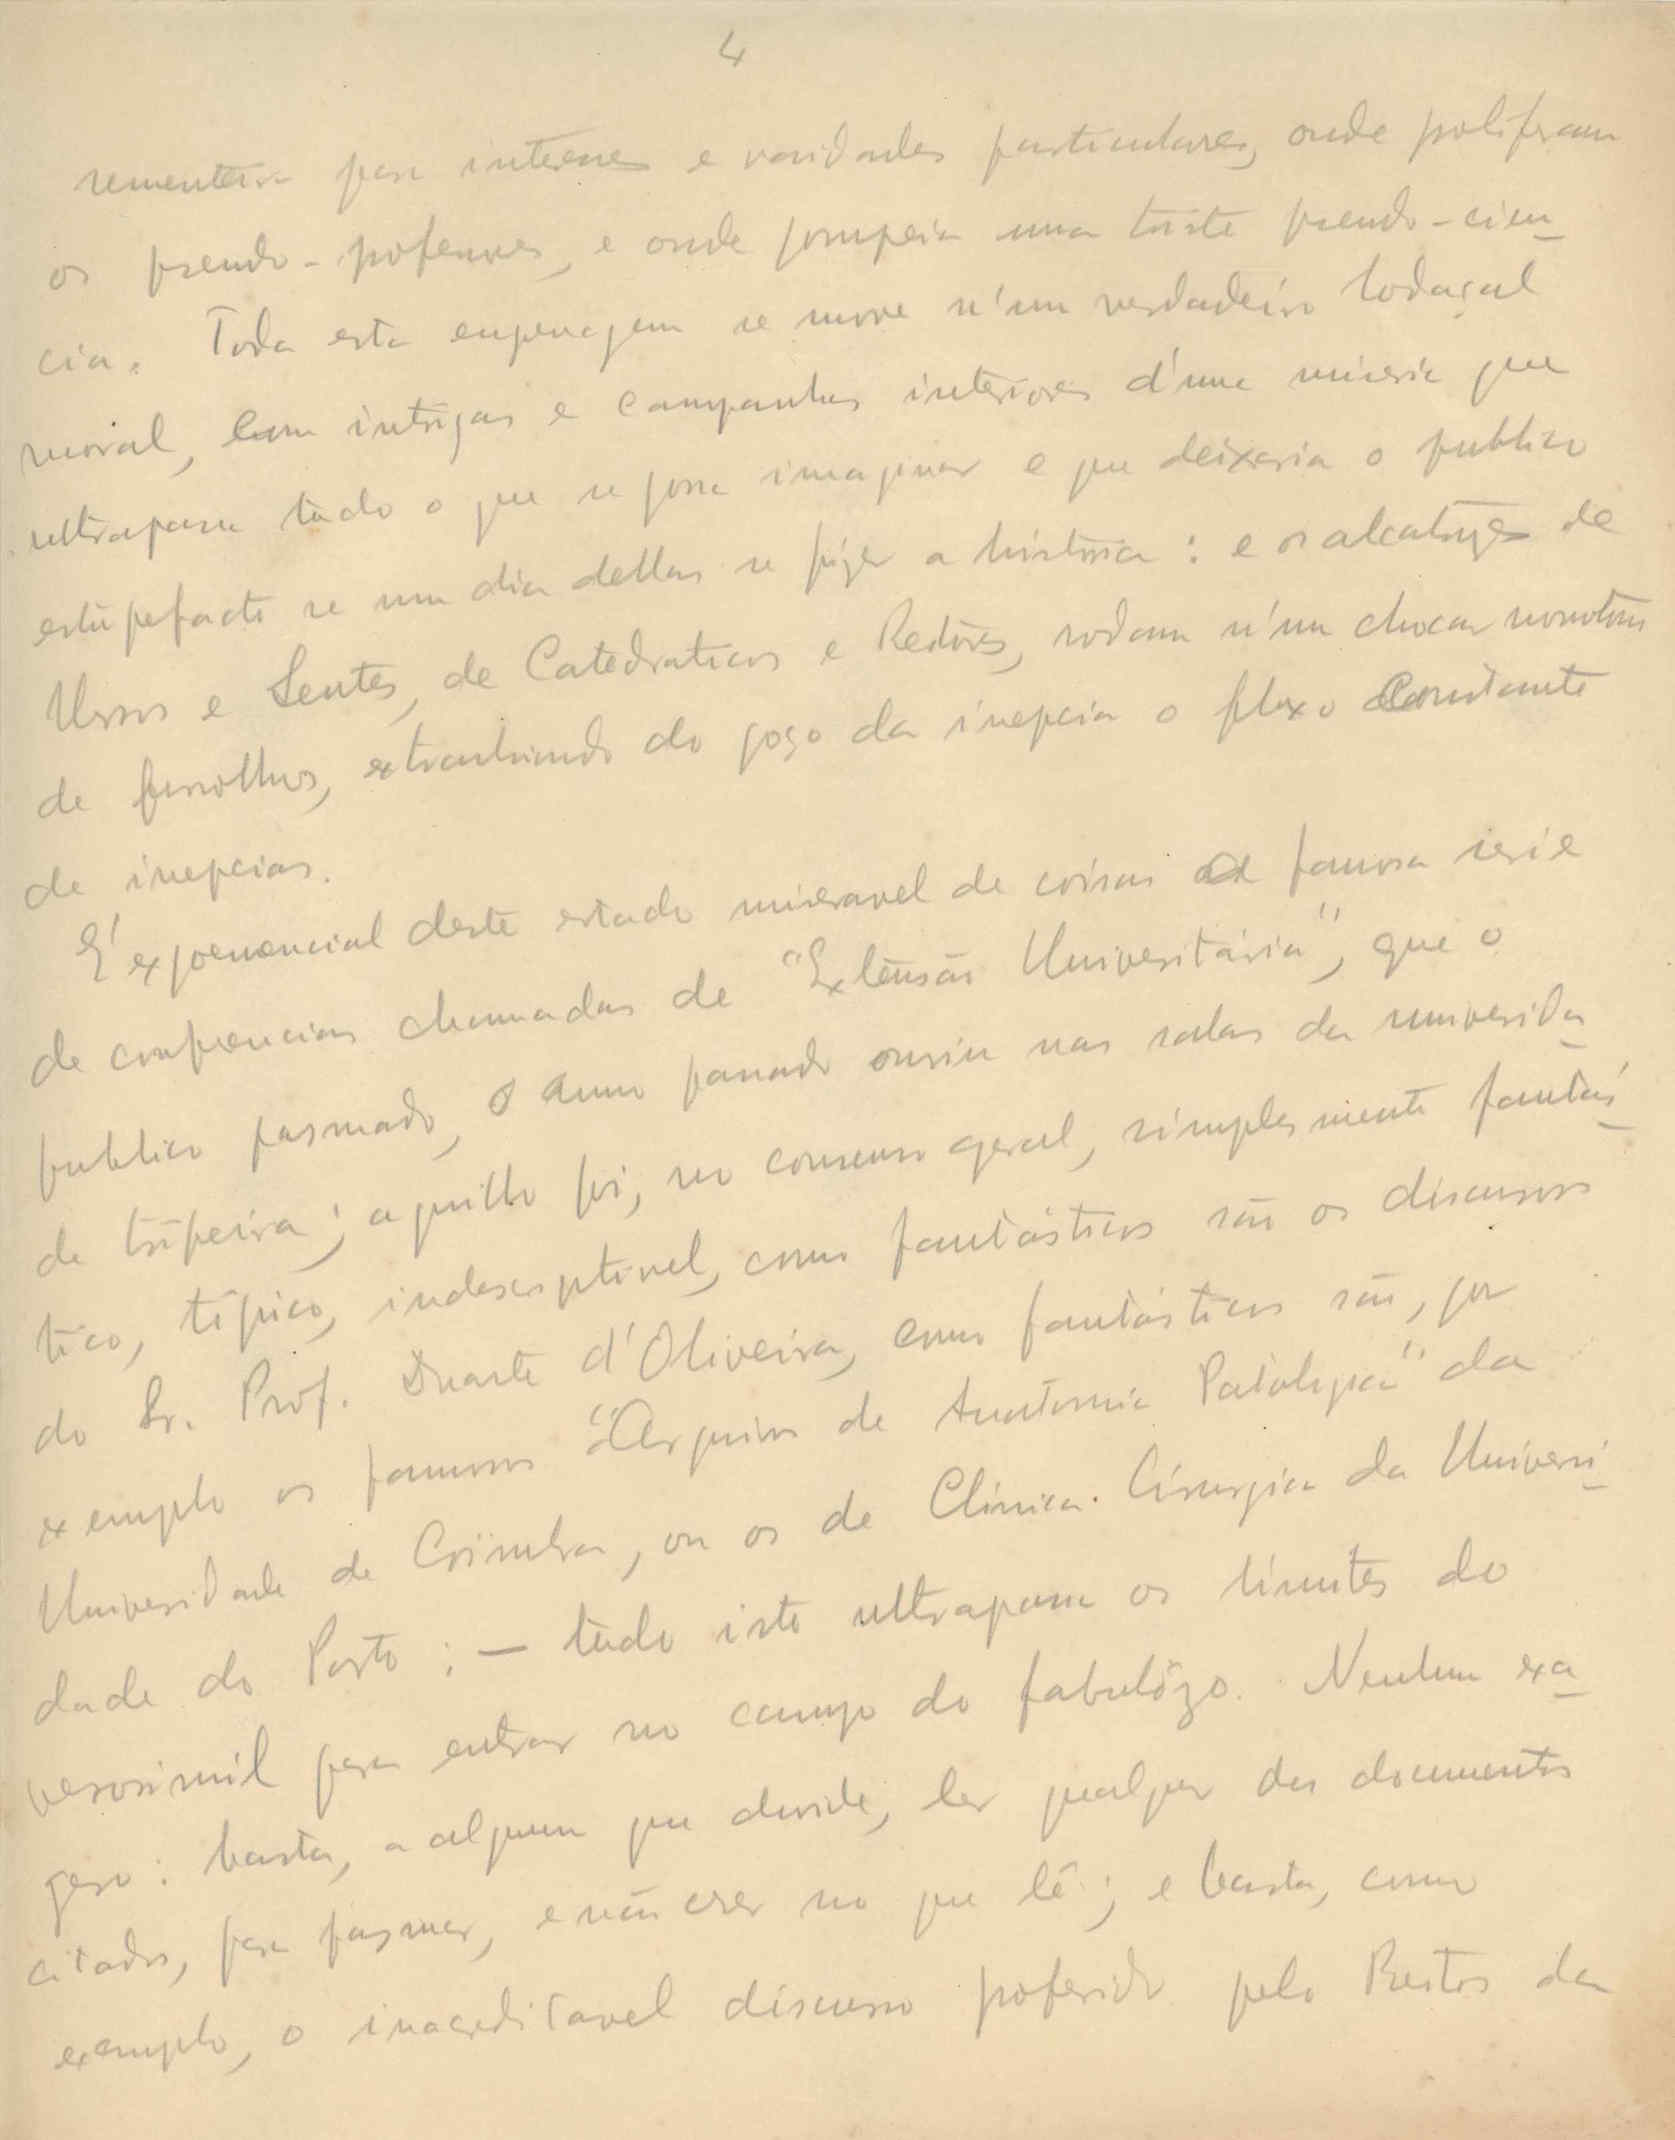 4
sementeira para interesses e vaidades particulares, onde proliferam
os pseudo-professores, e onde pompeia uma triste pseudo-cien
cia. Toda esta engrenagem se move n'um verdadeiro lodaçal
moral, com intrigas e campanhas interiores d'uma miseria que
ultrapassa tudo o que se possa imaginar e que deixaria o publico
estupefacto se um dia dellas se fizer a história: e os alcatruzes de
Ursos e Lentes, de Catedraticos e Reitores, rodam n'um chocar monotono
de ferrolhos, extrahindo do poço da inepcia o fluxo constante
de inepcias.
É exponencial deste estado miseravel de coisas a famosa serie
de conferencias chamadas de "Extensão Universitária", que o
publico pasmado, o anno passado ouviu nas salas da universida
de tripeira; aquillo foi, no consenso geral, simplesmente fantás
tico, típico, indescriptivel, como fantásticos são os discursos
do Sr. Prof. Duarte d'Oliveira, como fantásticos são, por
exemplo os famosos "Arquivos de Anatomia Patologica" da
Universidade de Coimbra, ou os de Clinica Cirurgica da Universi
dade do Porto; — tudo isto ultrapassa os limites do
verosimil para entrar no campo do fabulôzo. Nenhum exa
gero: basta, a alguem que duvide, ler qualquer dos documentos
citados, para pasmar, e não crer no que lê; e basta, como
exemplo, o inacreditavel discurso proferido pelo Reitor da